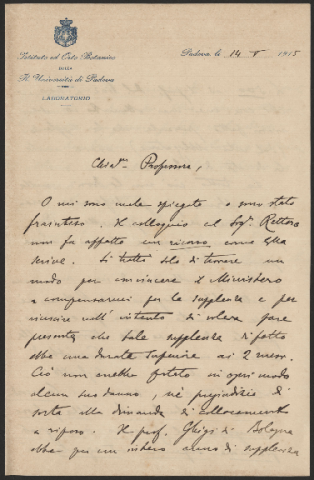 Istituto ed Orto Botanico
DELLA
R. Università di Padova
LABORATORIO
Padova li 14 V 1915
Chiar.mo Professore,
O mi sono male spiegato o sono stato
frainteso. Il colloquio col Sig. Rettore
non fu affatto un ricorso come Ella
scrive. Si trattò solo di tenere un
modo per convincere il Ministero
a compensarmi per la supplenza e per
riuscire nell'intento di volere fare
presente che tale supplenza di fatto
ebbe una durata superiore ai 2 mesi.
Ciò non avrebbe portato in ogni modo
alcun suo danno, nè pregiudizio di
sorta alla domanda di collocamento
a riposo. Il prof. Ghigi di Bologna
ebbe per un intero anno di supplenza